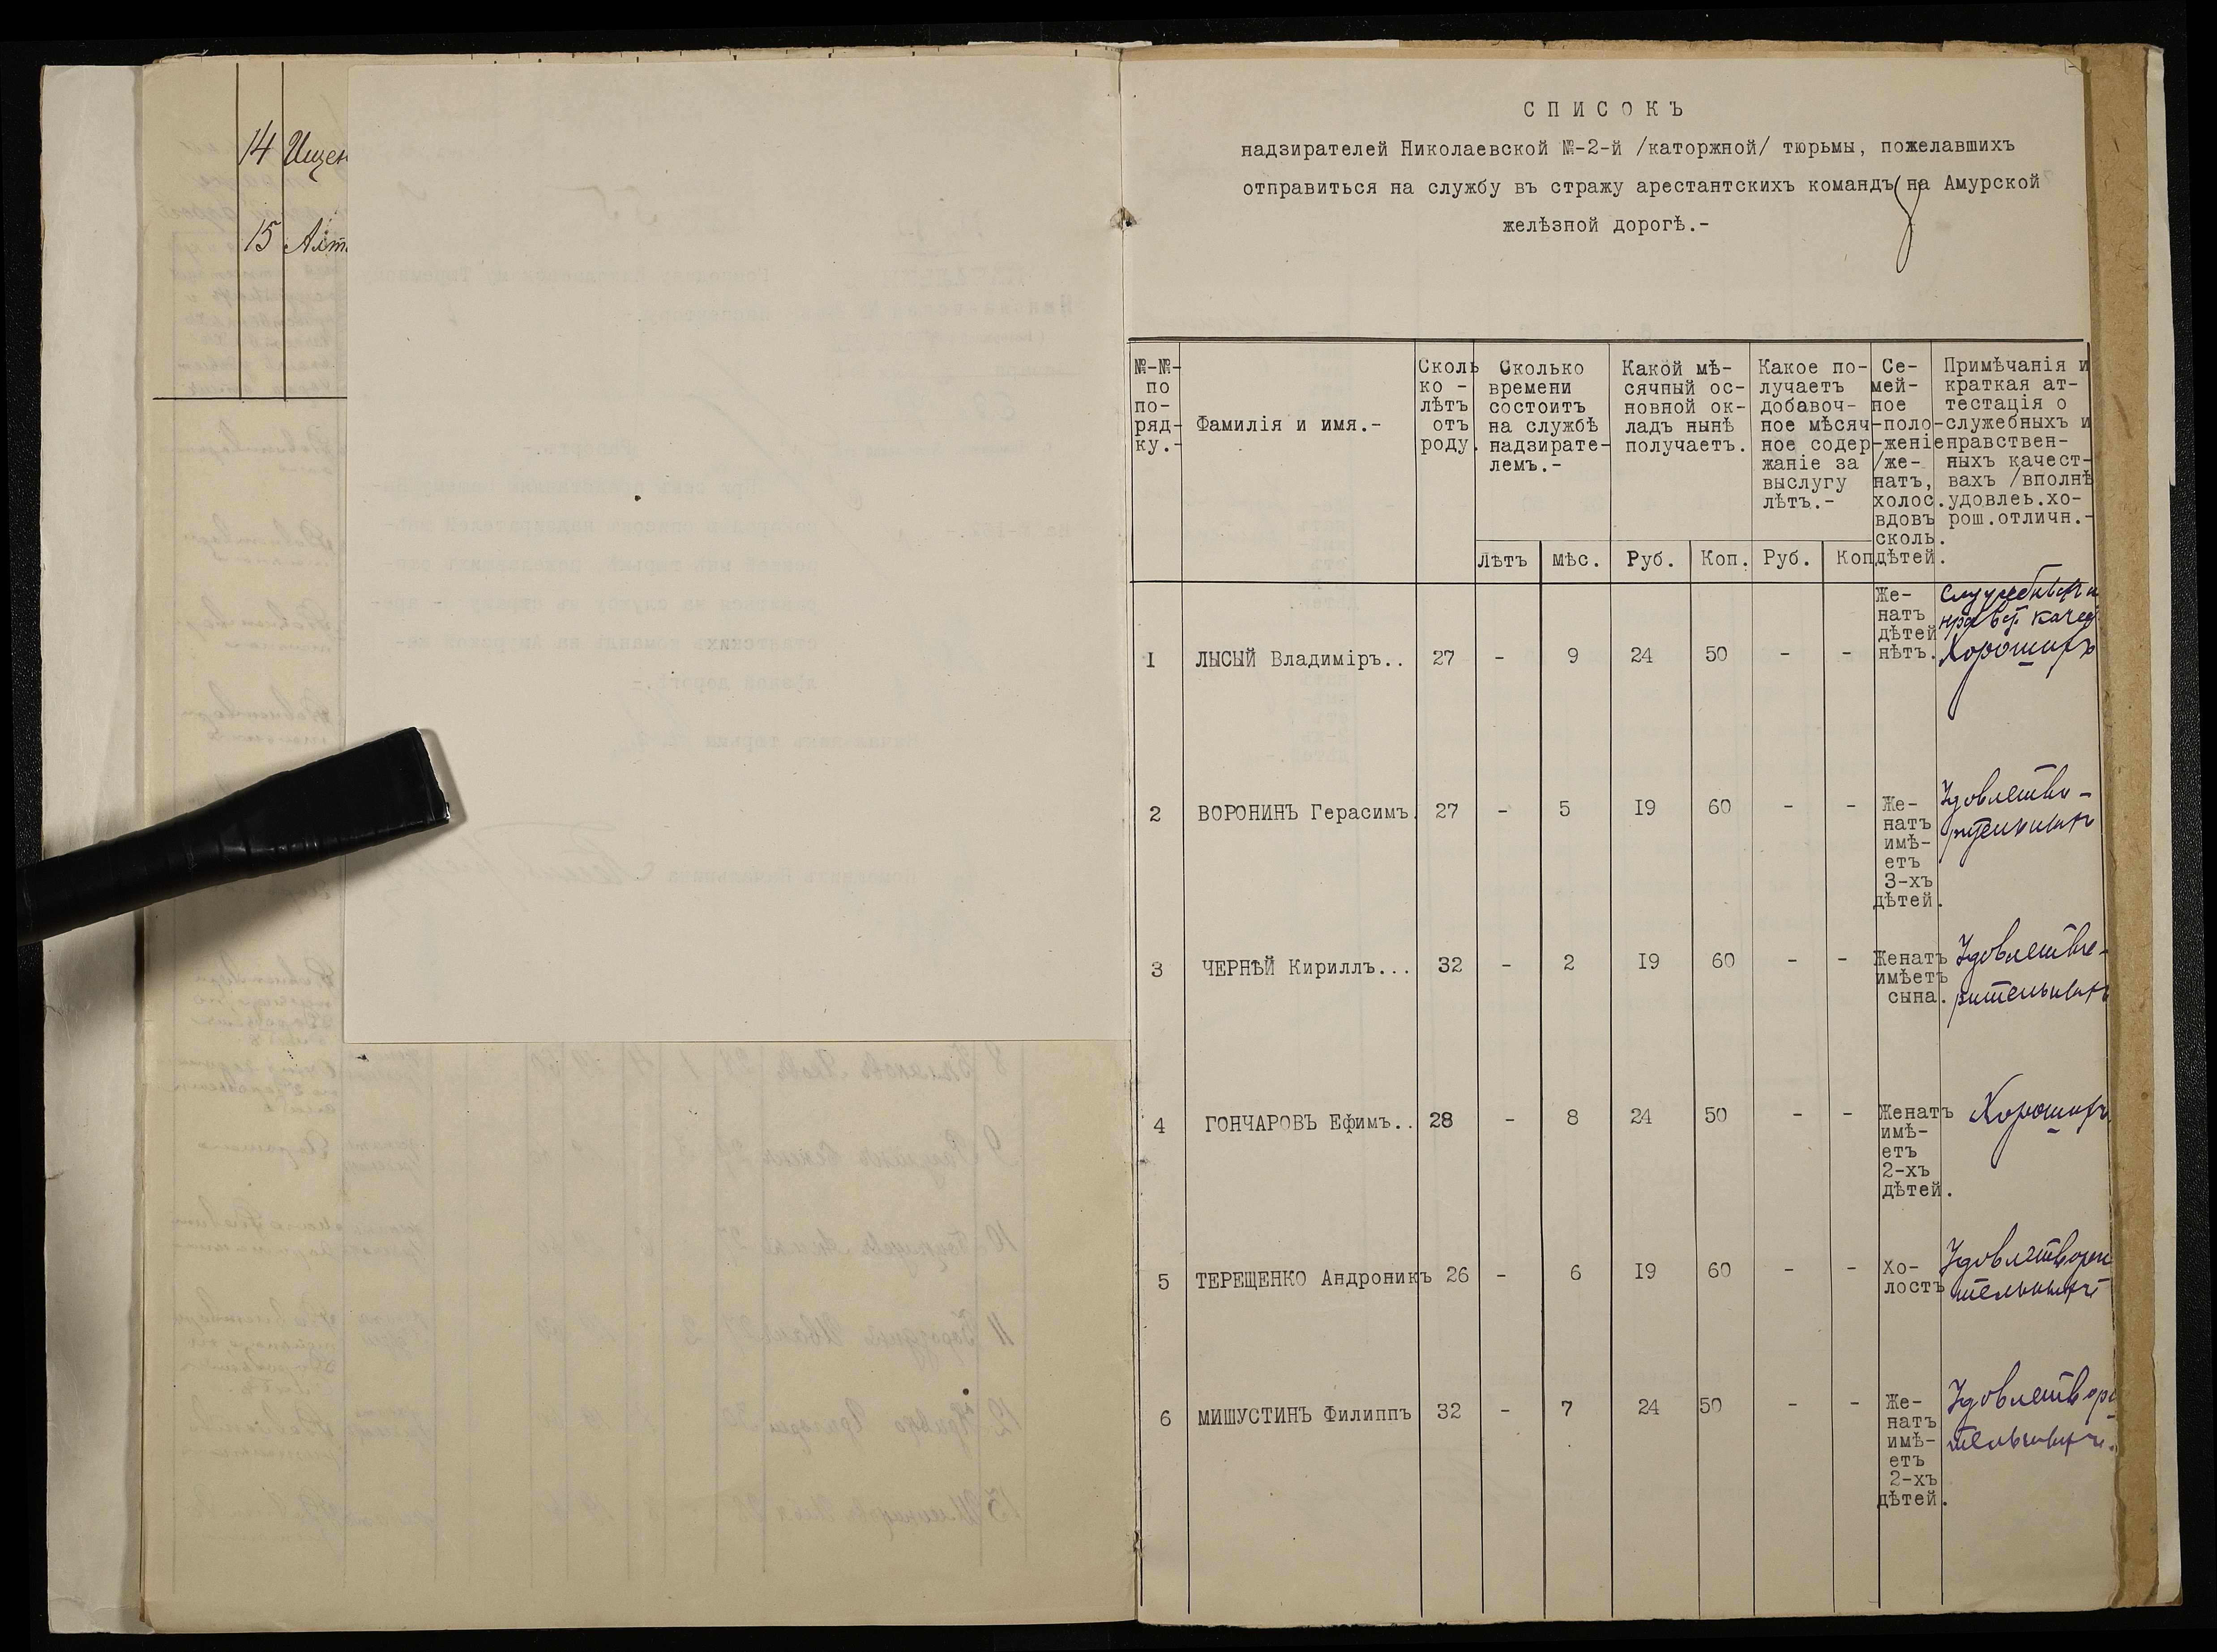 14 Ищен
15 Ахт
СПИСОКЪ
надзирателей Николаевской №-2-й /каторжной/ тюрьмы, пожелавшихъ
отправиться на службу въ стражу арестантскихъ командъ на Амурской
желѣзной дорогѣ.-
№-№- по по- ряд- ку.-
Фамилія и имя.-
Сколь ко - лѣтъ отъ роду.
Сколько времени состоитъ на службѣ надзирате- лемъ.-
Какой мѣ- сячный ос- новной ок- ладъ нынѣ получаетъ.
Какое по- лучаетъ добавоч- ное мѣсяч- ное содер- жаніе за выслугу лѣтъ.-
Се- мей- ное поло- женіе /же- натъ, холос. вдовъ сколь. дѣтей.
Примѣчанія и краткая ат- тестація о служебныхъ и нравствен- ныхъ качест- вахъ /вполнѣ удовлеь.хо- рош.отличн.-
Лѣтъ мѣс. Руб. Коп. Руб. Коп
1 ЛЫСЫЙ Владиміръ.. 27 - 9 24 50 - - Же- натъ дѣтей нѣтъ. Служебныхъ и нравст. качес. Хорошихъ
2 ВОРОНИНЪ Герасимъ. 27 - 5 19 60 - - Же- натъ имѣ- етъ 3-хъ дѣтей. Удовлетво- рительныхъ
3 ЧЕРНѢЙ Кириллъ... 32 - 2 19 60 - - Женатъ имѣетъ сына. Удовлетво- рительныхъ
4 ГОНЧАРОВЪ Ефимъ.. 28 - 8 24 50 - - Женатъ имѣ- етъ 2-хъ дѣтей. Хорошихъ
5 ТЕРЕЩЕНКО Андроникъ 26 - 6 19 60 - - Хо- лостъ Удовлетвори тельныхъ
6 МИШУСТИНЪ Филиппъ 32 - 7 24 50 - - Же- натъ имѣ- етъ 2-хъ дѣтей. Удовлетвори тельныхъ.